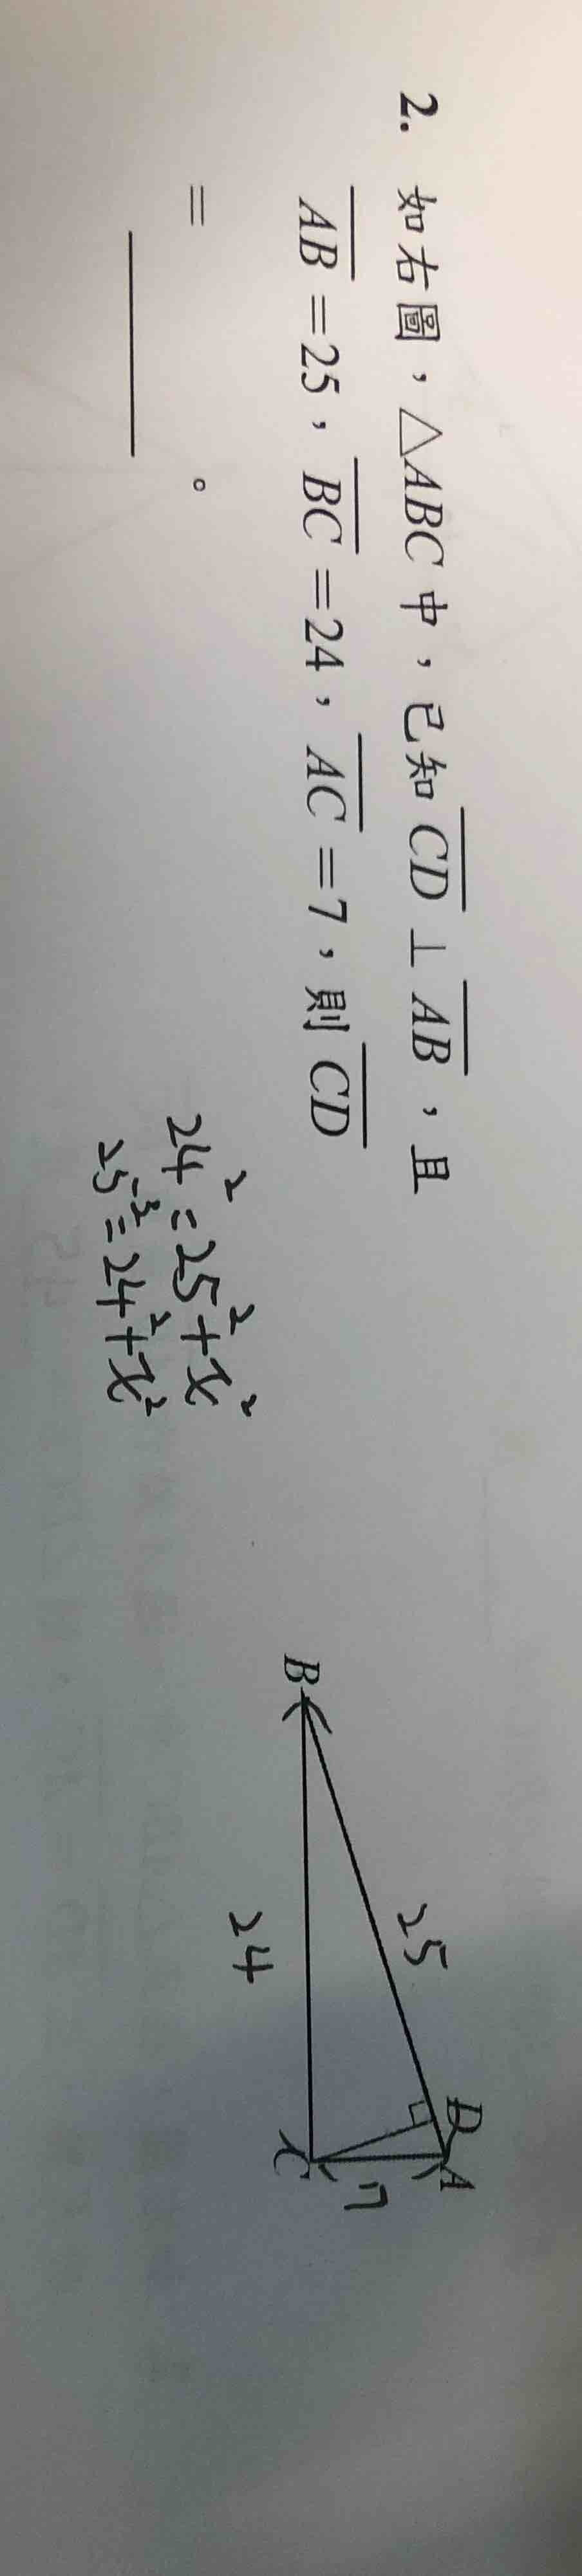 2. 如右圖，△ABC中，已知 CD ⊥ AB，且
AB =25，BC =24，AC =7，則 CD
= ______。
24² = 25² + x²
25² = 24² + x²
B
25
24
D
A
C
7